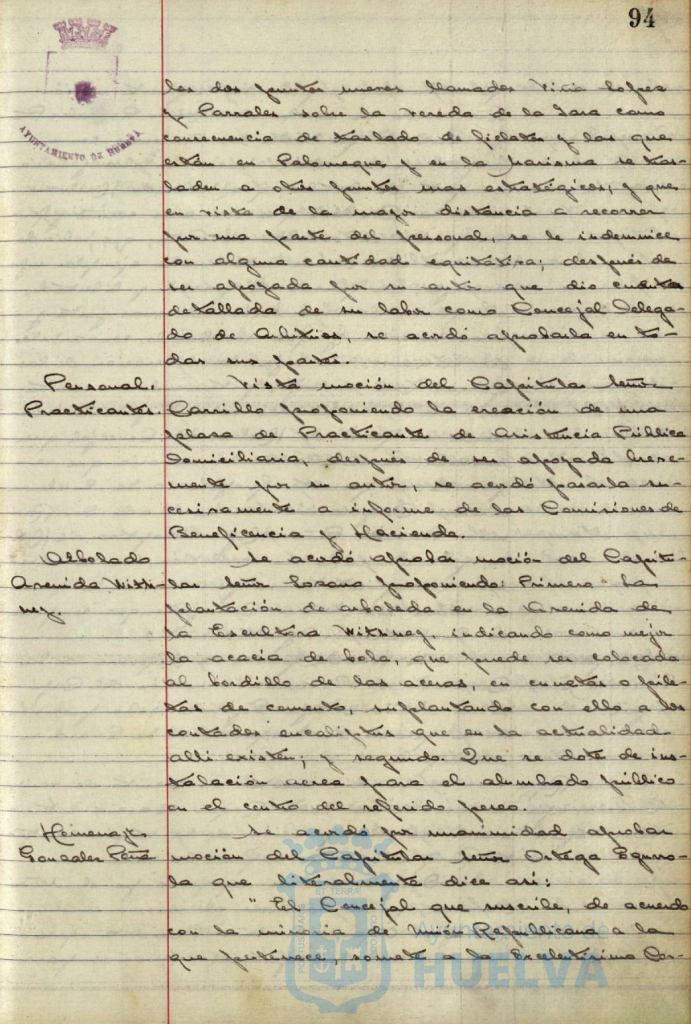 94
AYUNTAMIENTO DE HUELVA
los dos puntos nuevos llamados Viña López
y Parrales sobre la Vereda de la Jara como
consecuencia de traslado de fielatos y los que
están en Palomeque y en la Marisma se tras-
laden a otros puntos mas estratégicos, y que
en vista de la mayor distancia a recorrer
por una parte del personal, se le indemnice
con alguna cantidad equitativa; después de
ser apoyada por su autor que dio cuenta
detallada de su labor como Concejal Delega-
do de Arbitrios, se acordó aprobarla en to-
das sus partes.
Personal.
Practicantes.
Vista moción del Capitular Señor
Carrillo proponiendo la creación de una
plaza de Practicante de Asistencia Pública
Domiciliaria, después de ser apoyada breve-
mente por su autor, se acordó pasarla su-
cesivamente a informe de las Comisiones de
Beneficencia y Hacienda.
Arbolado
Avenida Withn-
ney.
Se acordó aprobar moción del Capitu-
lar Señor Lozano proponiendo: Primero La
plantación de arboleda en la Avenida de
la Escultora Withney, indicando como mejor
la acacia de bola, que puede ser colocada
al bordillo de las aceras, en cunetas o pile-
tas de cemento, suplantando con ello a los
contados eucaliptus que en la actualidad
alli existen; y segundo. Que se dote de ins-
talación aerea para el alumbrado público
en el centro del referido paseo.
Homenaje
Gonzalez Peña
Se acordó por unanimidad aprobar
moción del Capitular Señor Ortega Eguro-
la que literalmente dice así:
"El Concejal que suscribe, de acuerdo
con la minoria de Unión Republicana a la
que pertenece, somete a la Excelentísima Cor-
Ayuntamiento de
HUELVA